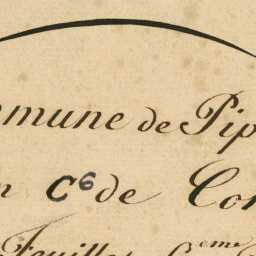 mmune de Pip
n C⁶ de Con
Feuilles 6eme